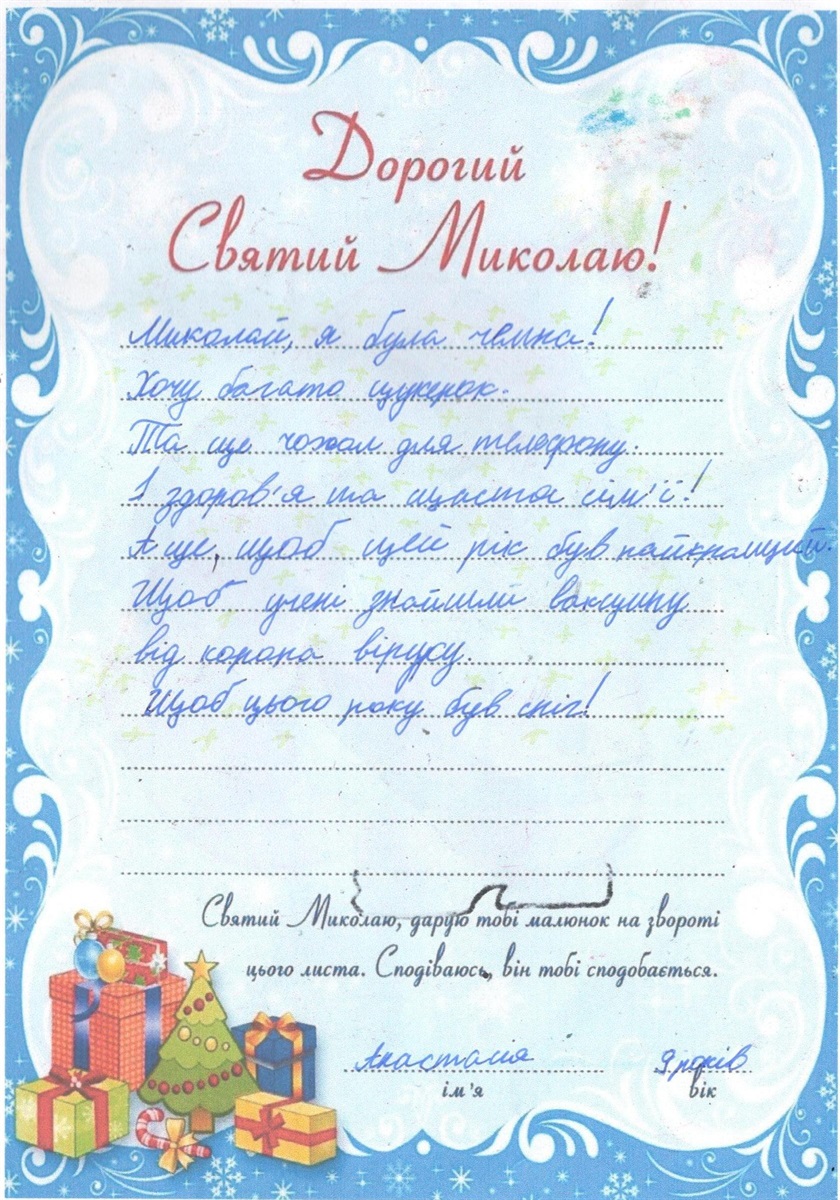 Дорогий
Святий Миколаю!
Миколай, я була чемна!
Хочу багато цукерок.
Та ще чохол для телефону.
І здоров'я та щастя сім'ї!
А ще, щоб цей рік був найкращий.
Щоб учені знайшли вакцину
від корона вірусу.
Щоб цього року був сніг!
Святий Миколаю, дарую тобі малюнок на звороті
цього листа. Сподіваюсь, він тобі сподобається.
Анастасія 9 років
ім'я вік